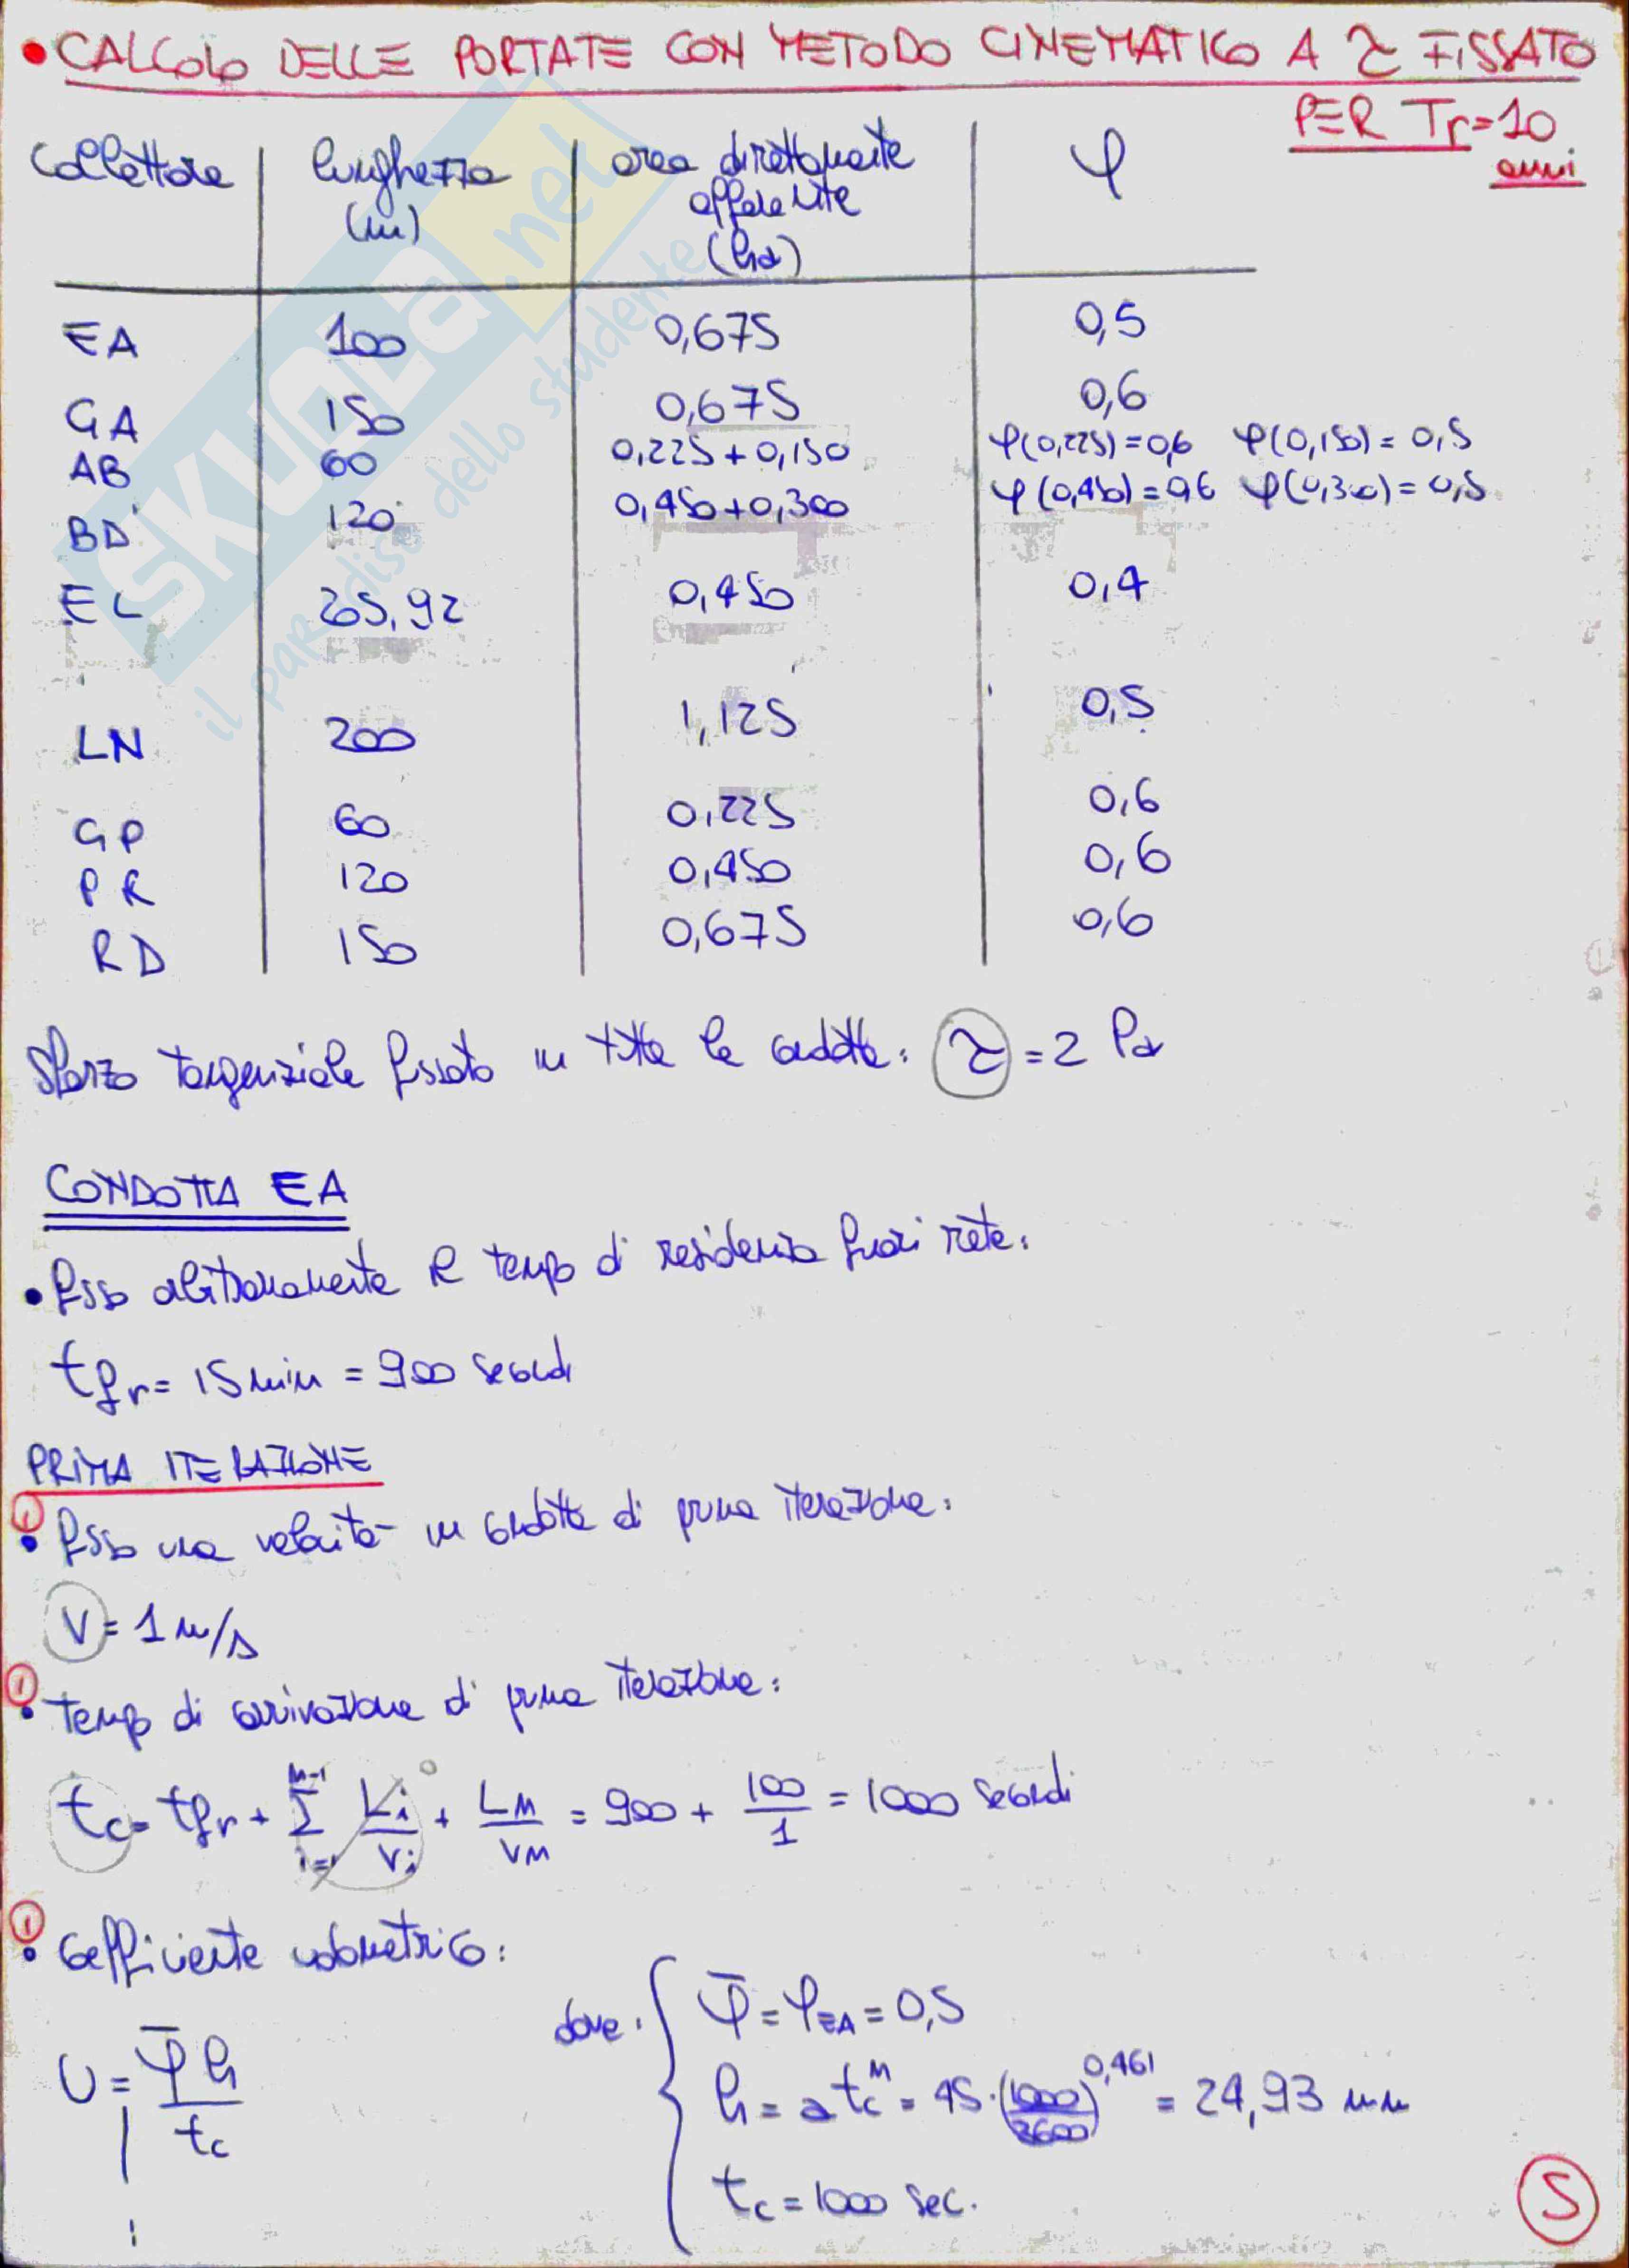 • CALCOLO DELLE PORTATE CON METODO CINEMATICO A τ FISSATO
PER Tr=10 anni
collettore | lunghezza (m) | area direttamente afferente (ha) | φ
EA 100 0,675 0,5
GA 150 0,675 0,6
AB 60 0,225+0,150 φ(0,225)=0,6 φ(0,150)=0,5
BD 120 0,450+0,300 φ(0,450)=0,6 φ(0,300)=0,5
EL 265,92 0,450 0,4
LN 200 1,125 0,5
GP 60 0,225 0,6
PR 120 0,450 0,6
RD 150 0,675 0,6
Sforzo tangenziale fissato in tutte le condotte: τ = 2 Pa
CONDOTTA EA
• fisso arbitrariamente il tempo di residenza fuori rete:
tfr = 15 min = 900 secondi
PRIMA ITERAZIONE
① • fisso una velocità in condotta di prima iterazione:
V = 1 m/s
① • tempo di corrivazione di prima iterazione:
tc = tfr + Σ(i=1, n-1) Li/Vi + LM/VM = 900 + 100/1 = 1000 secondi
① • coefficiente udometrico:
U = φ̄ h / tc
dove: { φ̄ = φEA = 0,5
h = a tc^n = 45·(1000/3600)^0,461 = 24,93 mm
tc = 1000 sec.
5
SKUOLA.net
il paradiso dello studente